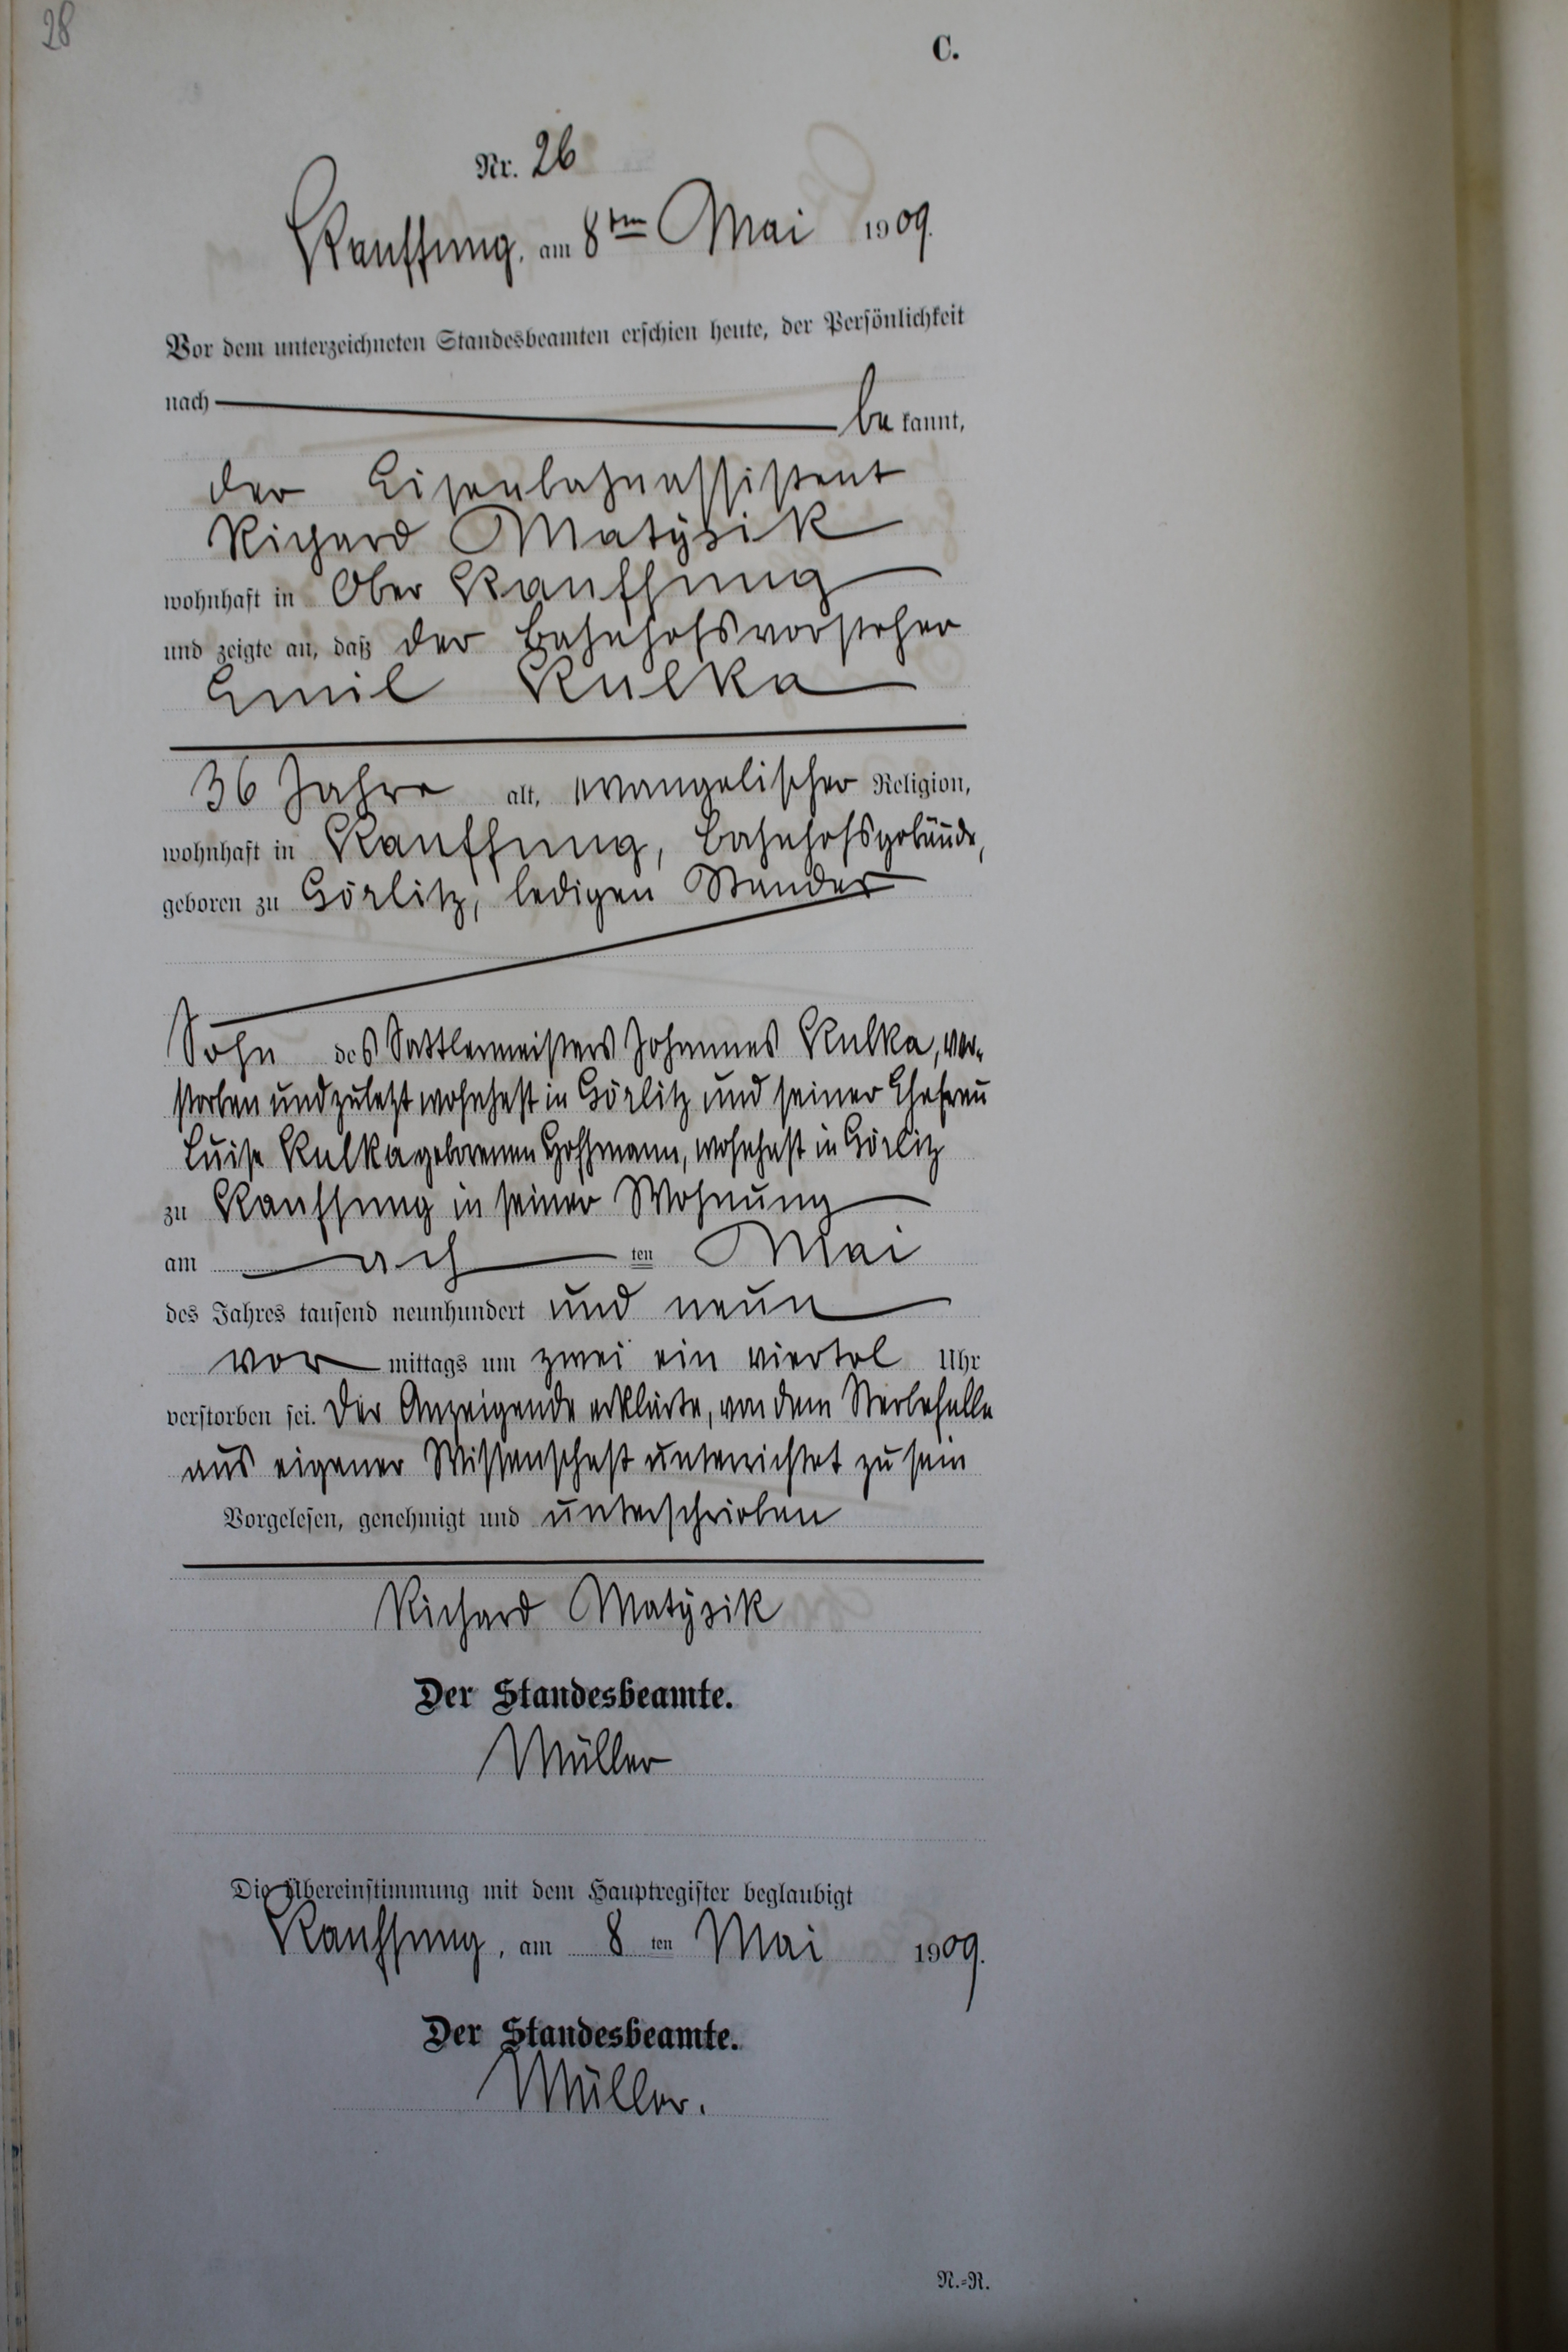 28
C.
Nr. 26
Kauffung, am 8ten Mai 1909.
Vor dem unterzeichneten Standesbeamten erschien heute, der Persönlichkeit
nach be kannt,
der Eisenbahnassistent
Richard Matysik
wohnhaft in Ober Kauffung
und zeigte an, daß der Bahnhofsvorsteher
Emil Kulka
36 Jahre alt, evangelischer Religion,
wohnhaft in Kauffung, Bahnhofsgebäude,
geboren zu Görlitz, ledigen Standes
Sohn des Sattlermeisters Johannes Kulka, ver-
storben und zuletzt wohnhaft in Görlitz und seiner Ehefrau
Luise Kulka geborenen Hoffmann, wohnhaft in Görlitz
zu Kauffung in seiner Wohnung
am ach ten Mai
des Jahres tausend neunhundert und neun
vor mittags um zwei ein viertel Uhr
verstorben sei. Der Anzeigende erklärte, von dem Sterbefalle
aus eigener Wissenschaft unterrichtet zu sein
Vorgelesen, genehmigt und unterschrieben
Richard Matysik
Der Standesbeamte.
Müller
Die Übereinstimmung mit dem Hauptregister beglaubigt
Kauffung, am 8 ten Mai 1909.
Der Standesbeamte.
Müller.
N.-R.